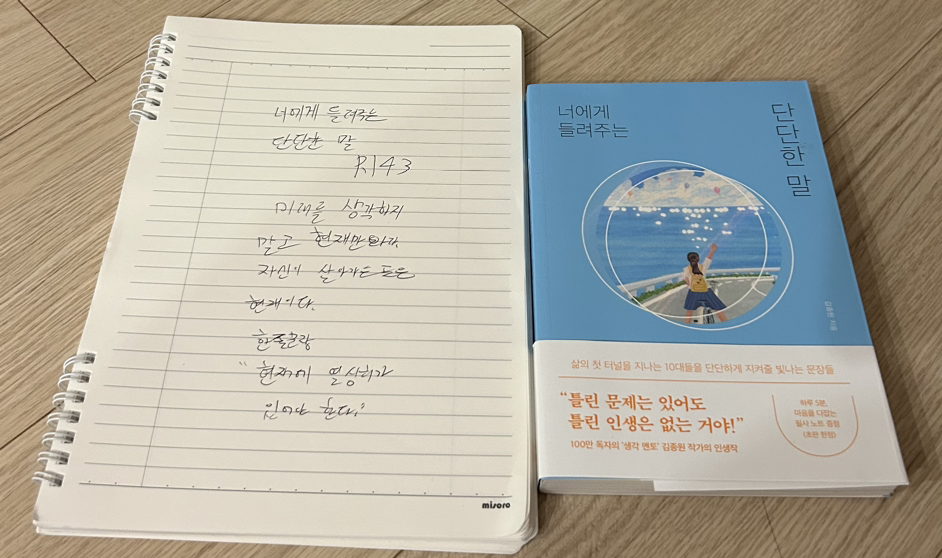 너에게 들려주는
단단한 말
P143
미래를 생각하지
말고 현재만 봐라.
자신이 살아가는
현재이다.
"현재에 열심히가
있어야 한다."
misoro
너에게
들려주는
단단한 말
김종원 지음
삶의 첫 터널을 지나는 10대들을 단단하게 지켜줄 빛나는 문장들
"틀린 문제는 있어도
틀린 인생은 없는 거야!"
100만 독자의 '생각 멘토' 김종원 작가의 인생작
하루 5분,
마음을 다잡는
필사 노트 증정
(초판 한정)